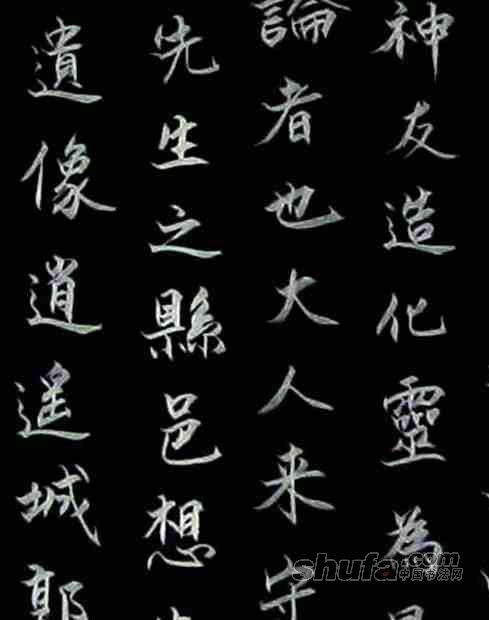 神友造化靈為
論者也大人来守
先生之縣邑想
遺像逍遥城郭
shufa.com
中国书法网